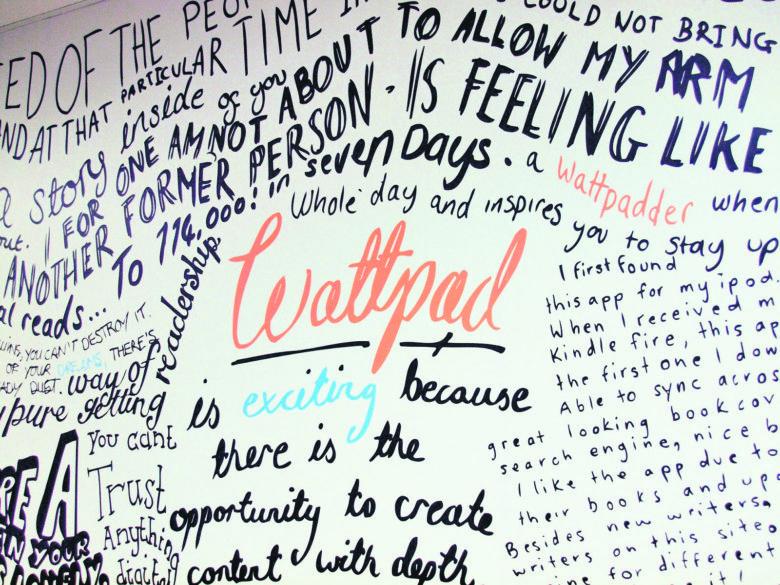 ED OF THE PEO
TIME I
COULD NOT BRING
AND AT THAT PARTICULAR
TO ALLOW MY ARM
a story inside of you
I FOR ONE AM NOT ABOUT
IS FEELING LIKE
out.
ANOTHER FORMER PERSON.
TO 114,000! in seven Days.
a Wattpadder when
al reads...
Whole day and inspires
you to stay up
readership.
way of
YOU CAN'T DESTROY IT.
OF YOUR DREAMS, THERE'S
DUET.
pure getting
Wattpad
is exciting because
there is the
opportunity to create
content with depth
I first found
this app for my ipod.
When I received m
Kindle fire, this ap
the first one I dow
Able to sync acros
great looking book cov
search engine, nice b
I like the app due to
their books and up
Besides new writers,
writers on this site
for different
RE A
you cant
Trust
Anything
digital
YOUR